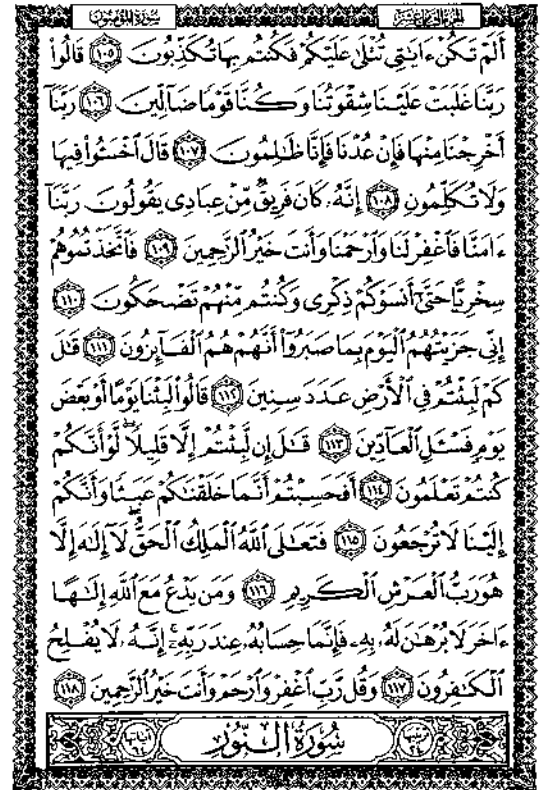 سُورَةُ المُؤْمِنُونَ الجُزْءُ الثَّامِنَ عَشَرَ
أَلَمْ تَكُنْ ءَايَٰتِى تُتْلَىٰ عَلَيْكُمْ فَكُنتُم بِهَا تُكَذِّبُونَ ١٠٥ قَالُوا۟
رَبَّنَا غَلَبَتْ عَلَيْنَا شِقْوَتُنَا وَكُنَّا قَوْمًا ضَآلِّينَ ١٠٦ رَبَّنَآ
أَخْرِجْنَا مِنْهَا فَإِنْ عُدْنَا فَإِنَّا ظَٰلِمُونَ ١٠٧ قَالَ ٱخْسَـُٔوا۟ فِيهَا
وَلَا تُكَلِّمُونِ ١٠٨ إِنَّهُۥ كَانَ فَرِيقٌ مِّنْ عِبَادِى يَقُولُونَ رَبَّنَآ
ءَامَنَّا فَٱغْفِرْ لَنَا وَٱرْحَمْنَا وَأَنتَ خَيْرُ ٱلرَّٰحِمِينَ ١٠٩ فَٱتَّخَذْتُمُوهُمْ
سِخْرِيًّا حَتَّىٰٓ أَنسَوْكُمْ ذِكْرِى وَكُنتُم مِّنْهُمْ تَضْحَكُونَ ١١٠
إِنِّى جَزَيْتُهُمُ ٱلْيَوْمَ بِمَا صَبَرُوٓا۟ أَنَّهُمْ هُمُ ٱلْفَآئِزُونَ ١١١ قَٰلَ
كَمْ لَبِثْتُمْ فِى ٱلْأَرْضِ عَدَدَ سِنِينَ ١١٢ قَالُوا۟ لَبِثْنَا يَوْمًا أَوْ بَعْضَ
يَوْمٍ فَسْـَٔلِ ٱلْعَآدِّينَ ١١٣ قَٰلَ إِن لَّبِثْتُمْ إِلَّا قَلِيلًا لَّوْ أَنَّكُمْ
كُنتُمْ تَعْلَمُونَ ١١٤ أَفَحَسِبْتُمْ أَنَّمَا خَلَقْنَٰكُمْ عَبَثًا وَأَنَّكُمْ
إِلَيْنَا لَا تُرْجَعُونَ ١١٥ فَتَعَٰلَى ٱللَّهُ ٱلْمَلِكُ ٱلْحَقُّ لَآ إِلَٰهَ إِلَّا
هُوَ رَبُّ ٱلْعَرْشِ ٱلْكَرِيمِ ١١٦ وَمَن يَدْعُ مَعَ ٱللَّهِ إِلَٰهًا
ءَاخَرَ لَا بُرْهَٰنَ لَهُۥ بِهِۦ فَإِنَّمَا حِسَابُهُۥ عِندَ رَبِّهِۦٓ إِنَّهُۥ لَا يُفْلِحُ
ٱلْكَٰفِرُونَ ١١٧ وَقُل رَّبِّ ٱغْفِرْ وَٱرْحَمْ وَأَنتَ خَيْرُ ٱلرَّٰحِمِينَ ١١٨
ترتيبها ٢٤ سُورَةُ النُّورِ آياتها ٦٤